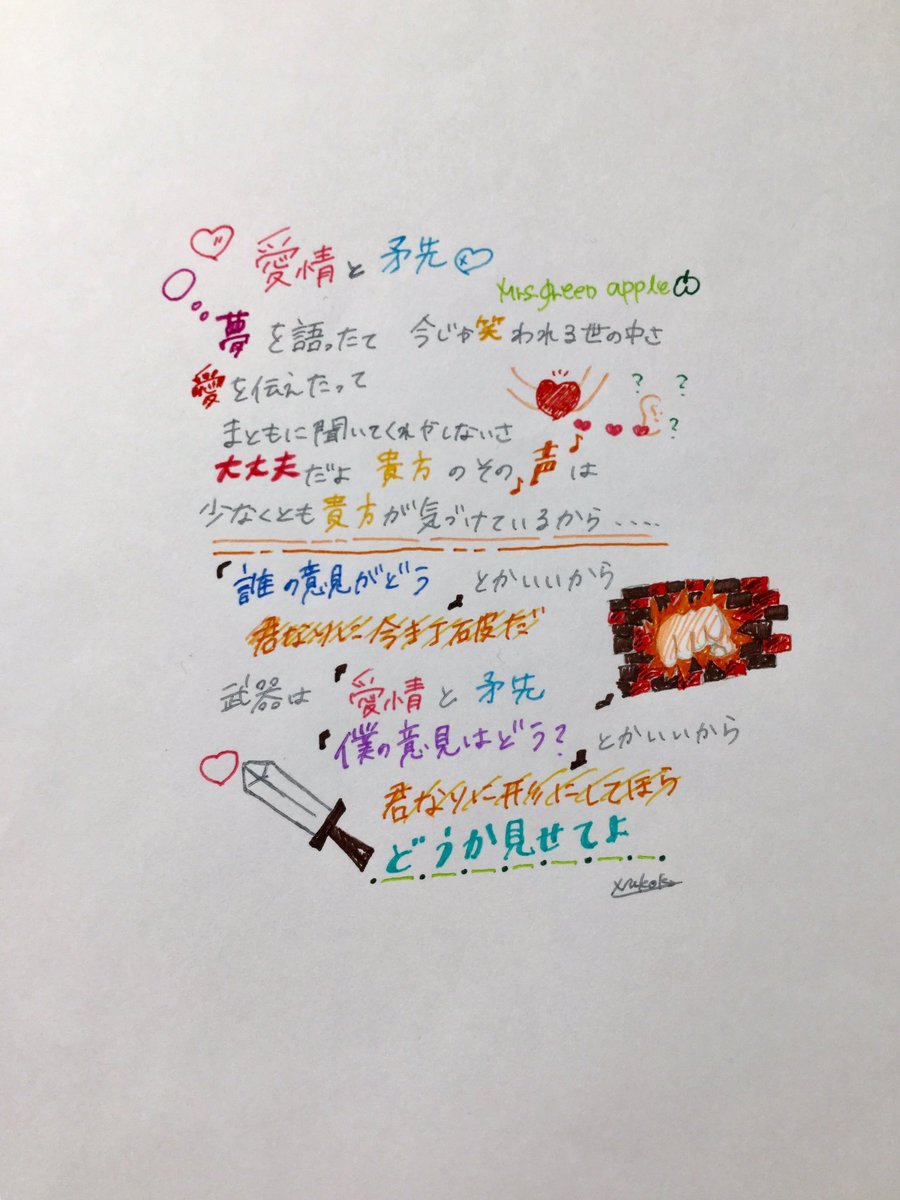 愛情と矛先
Mrs.green apple
夢を語ったて 今じゃ笑われる世の中さ
愛を伝えたって
まともに聞いてくれやしないさ
? ? ?
大丈夫だよ 貴方のその声は
少なくとも貴方が気づけているから.....
「誰の意見がどう」とかいいから
君なりに今を打破だ
武器は「愛情と矛先」
「僕の意見はどう?」とかいいから
君なりに形にしてほら
どうか見せてよ